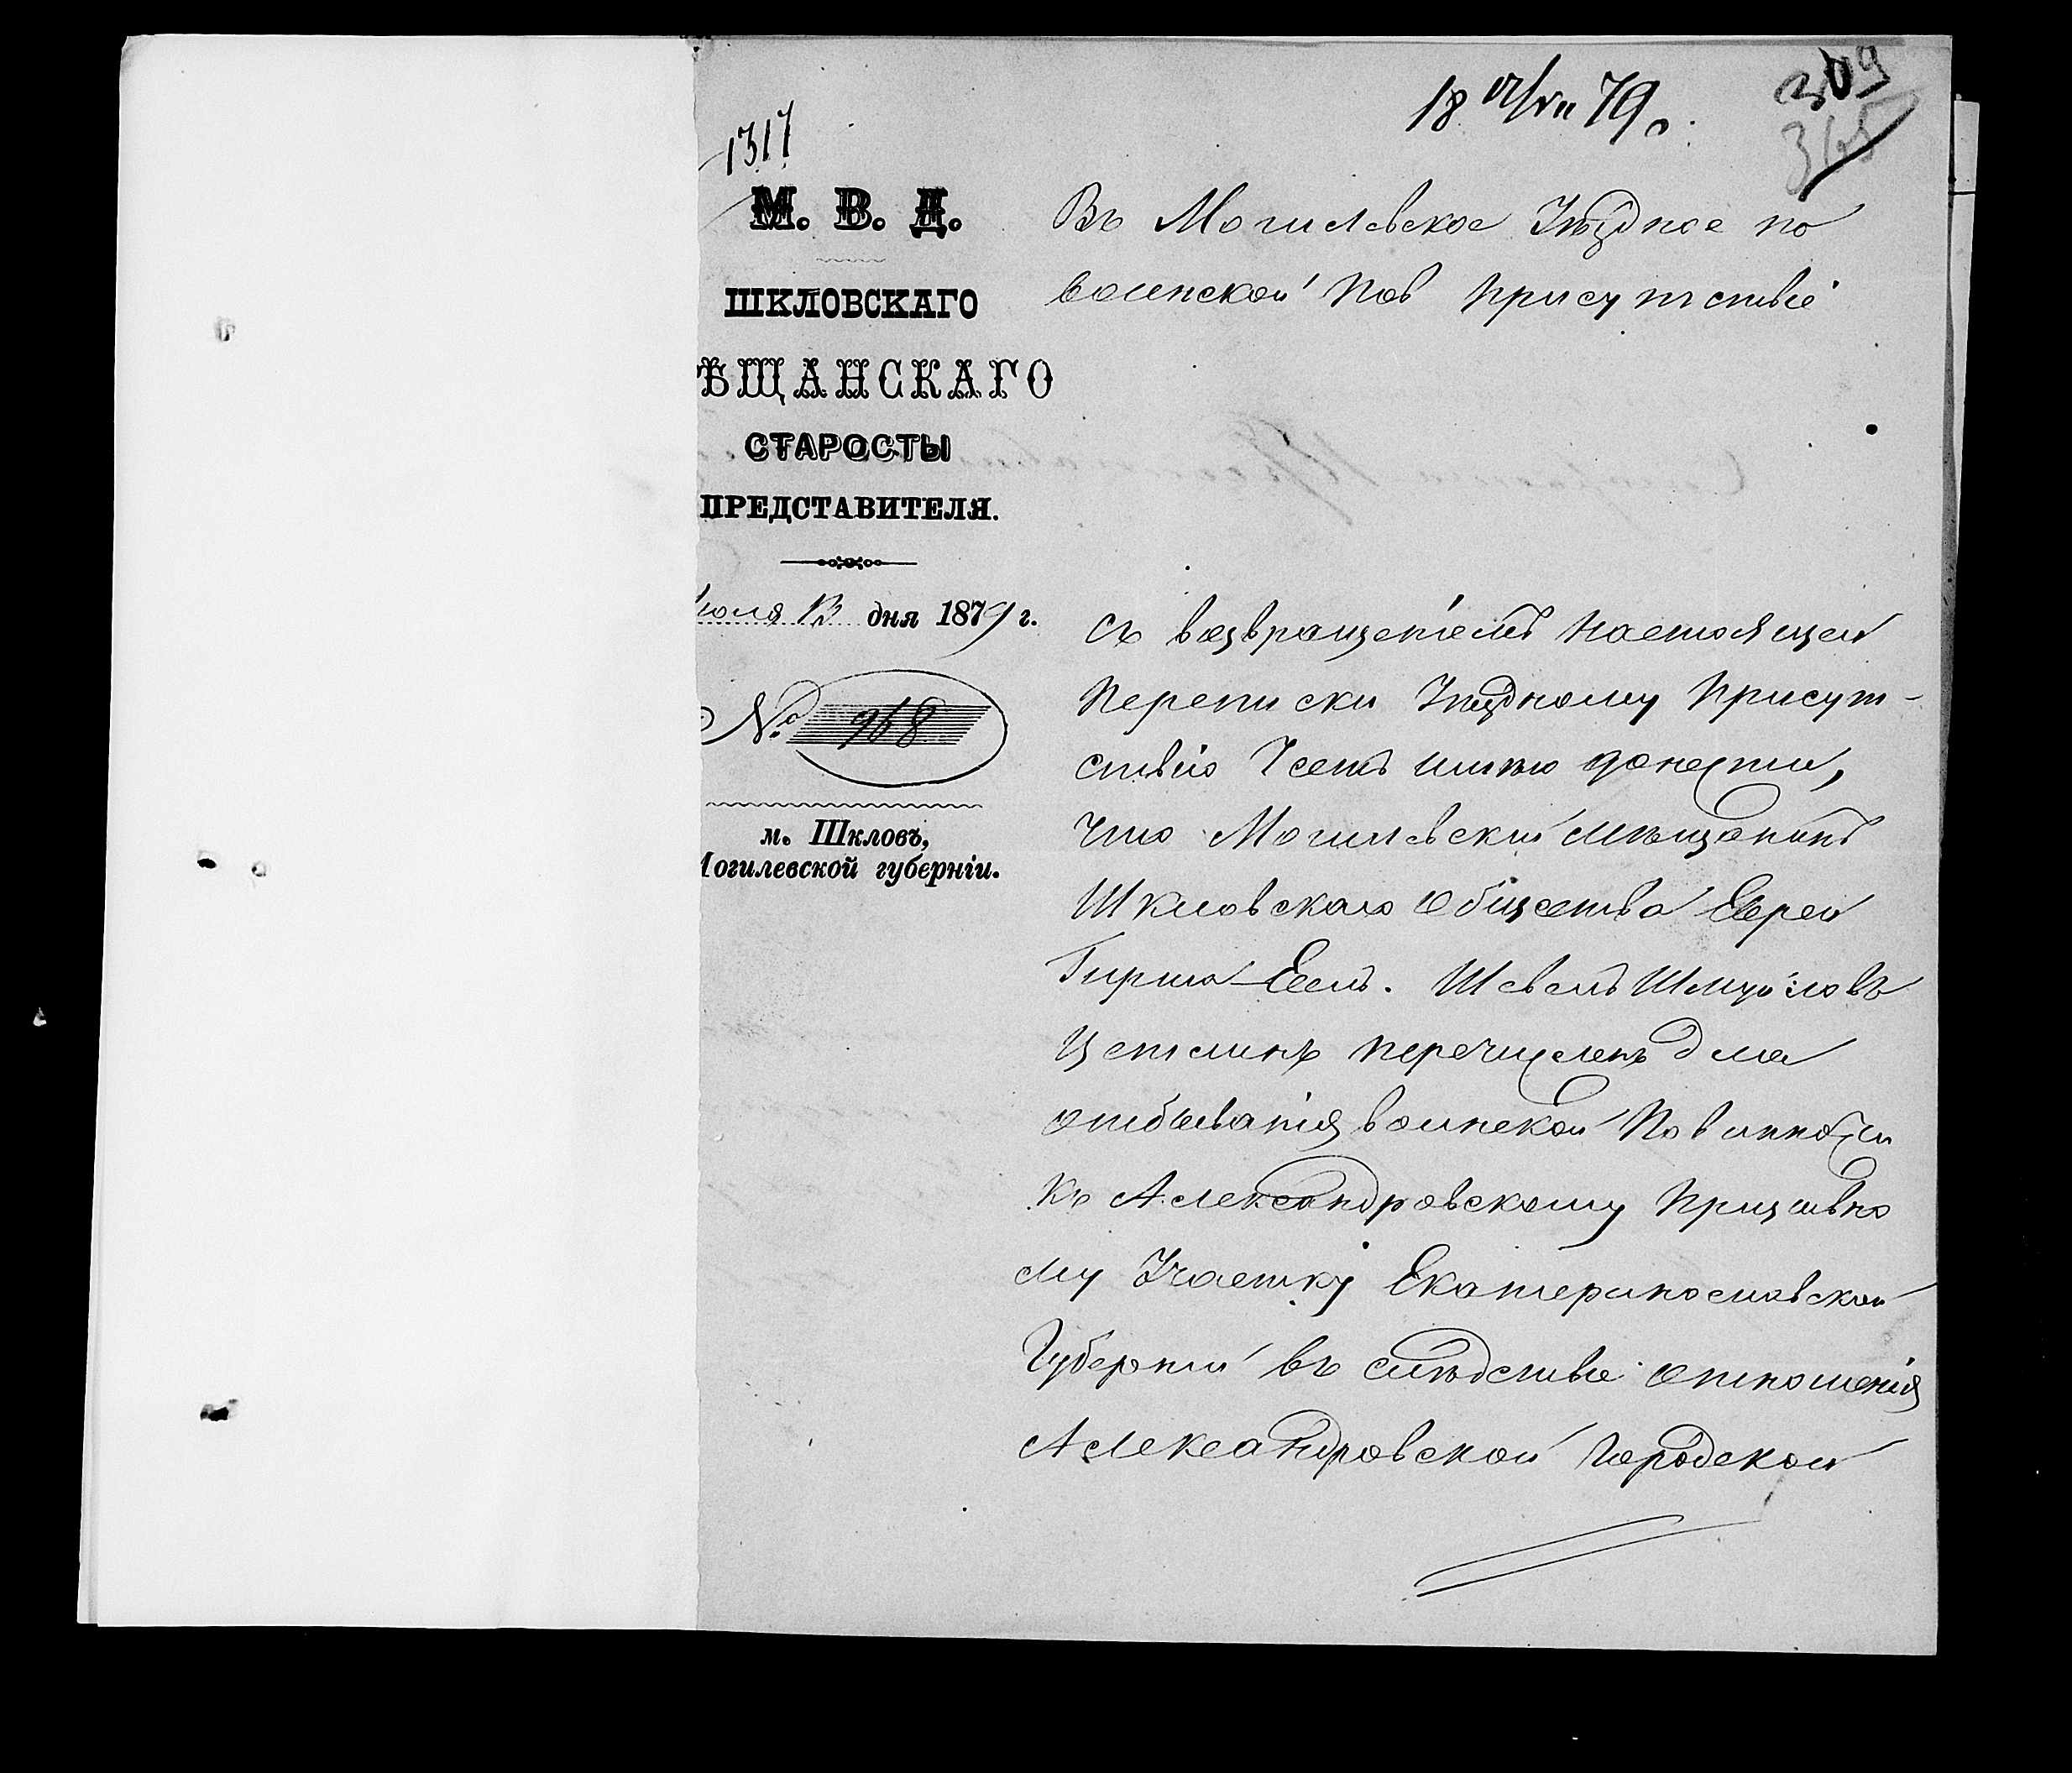 1317
18 17/VII 79 г.
309
365
М. В. Д.
ШКЛОВСКАГО
ѢЩАНСКАГО
СТАРОСТЫ
ПРЕДСТАВИТЕЛЯ.
юля 13 дня 1879 г.
№ 968
м. Шкловъ,
Могилевской губерніи.
Въ Могилевское Уѣздное по
воинской пов Присутствіе
Съ возвращеніемъ настоящей
переписки Уѣздному Присут-
ствію Честь имѣю донести,
что Могилевскій мѣщанинъ
Шкловскаго Общества Еврей
Гирша Шмуйловъ
Цетлинъ перечисленъ для
отбыванія воинской Повинности
къ Александровскому Призывно
му Участку Екатеринославской
Губерніи въ слѣдствіе отношенія
Александровской Городской